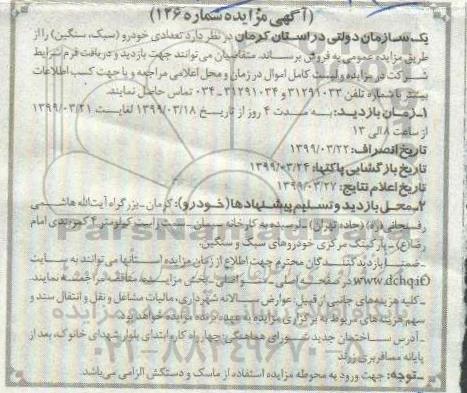 (آگهی مزایده شماره ۱۲۶)
یک سازمان دولتی در استان کرمان در نظر دارد تعدادی خودرو (سبک، سنگین) را از
طریق مزایده عمومی به فروش برساند. متقاضیان می توانند جهت بازدید و دریافت فرم شرایط
شرکت در مزایده و لیست کامل اموال در زمان و محل اعلامی مراجعه و یا جهت کسب اطلاعات
بیشتر با شماره تلفن ۳۱۲۹۱۰۳۳ و ۳۱۲۹۱۰۳۴ - ۰۳۴ تماس حاصل نمایند.
۱ـ زمان بازدید: به مدت ۴ روز از تاریخ ۱۳۹۹/۰۳/۱۸ لغایت ۱۳۹۹/۰۳/۲۱
از ساعت ۸ الی ۱۳
تاریخ انصراف: ۱۳۹۹/۰۳/۲۲
تاریخ بازگشایی پاکتها: ۱۳۹۹/۰۳/۲۴
تاریخ اعلام نتایج: ۱۳۹۹/۰۳/۲۷
۲ـ محل بازدید و تسلیم پیشنهادها (خودرو): کرمان ـ بزرگراه آیت الله هاشمی
رفسنجانی (ره) (جاده تهران) ـ نرسیده به کارخانه سیمان ـ سمت راست کیلومتر ۴ کمربندی امام
رضا(ع) ـ پارکینگ مرکزی خودروهای سبک و سنگین.
ـ ضمنا بازدیدکنندگان محترم جهت اطلاع از زمان مزایده استانها می توانند به سایت
(www.dchq.ir) در صفحه اصلی ـ بخش مزایده، مناقصه مراجعه نمایند.
ـ کلیه هزینه‌های جانبی از قبیل: عوارض سالانه شهرداری، مالیات مشاغل و نقل و انتقال سند و
سهم هزینه‌های مربوط به برگزاری مزایده به عهده برنده مزایده خواهد بود.
ـ آدرس ساختمان جدید شورای هماهنگی: چهارراه کار و ابتدای بلوار شهدای خانوک، بعد از
پایانه مسافربری زرند
ـ توجه: جهت ورود به محوطه مزایده استفاده از ماسک و دستکش الزامی می باشد.
ParsNamadData
۰۲۱-۸۸۳۴۹۶۷۰